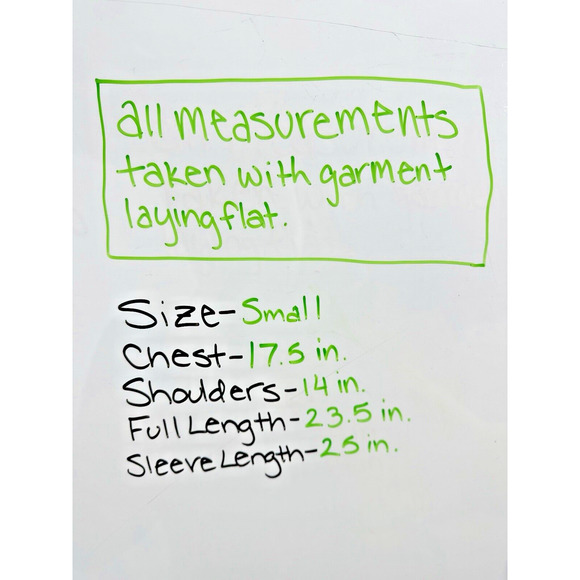 all measurements
taken with garment
laying flat.
Size-Small
Chest-17.5 in.
Shoulders-14 in.
Full Length-23.5 in.
Sleeve Length-25 in.